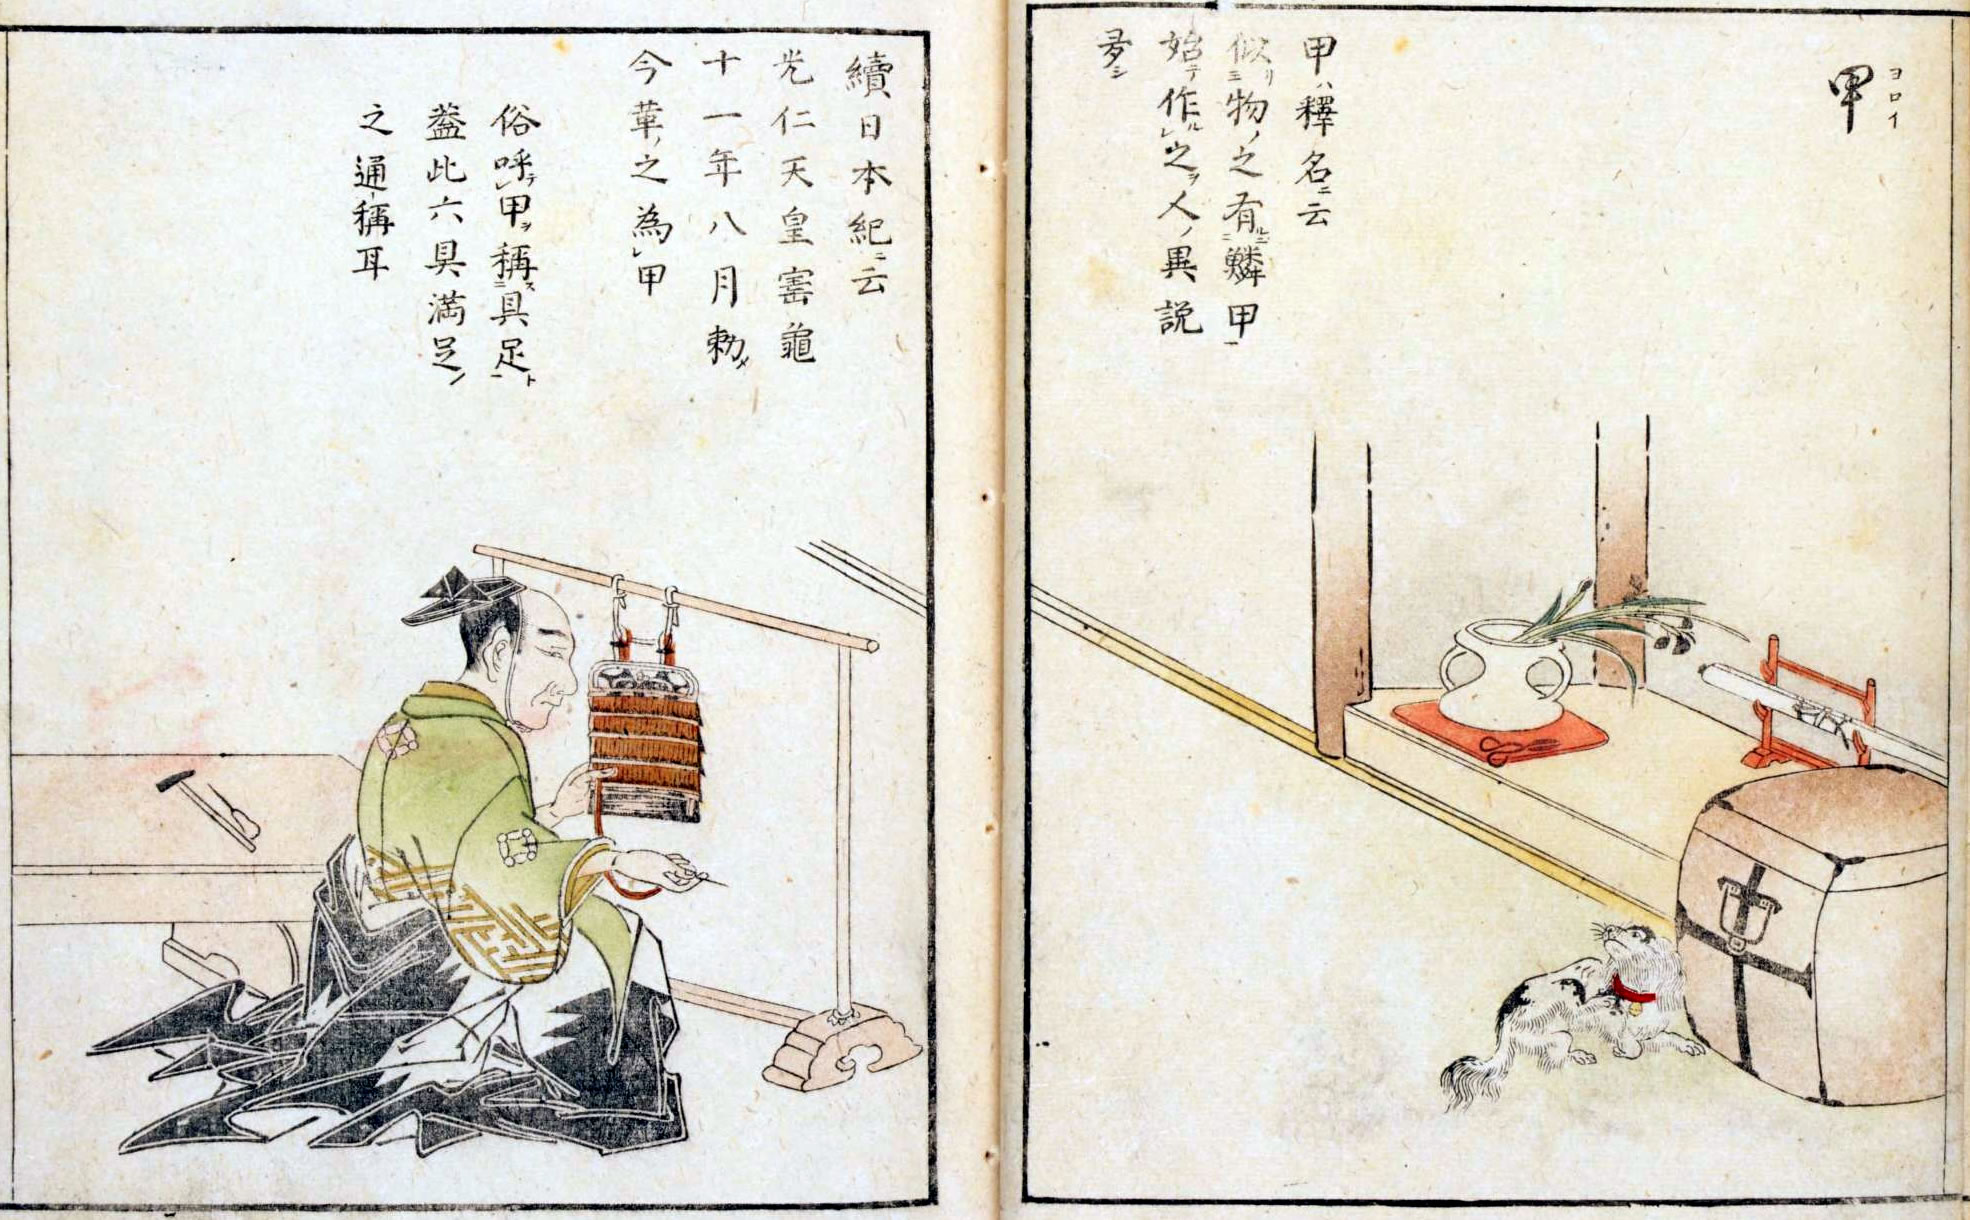 甲ヨロイ
甲ハ釋名ニ云
似リ三物ノ之有ルニ二鱗甲一
始テ作ルレ之ヲ人ノ異説
夛シ
續日本紀ニ云
光仁天皇寚龜
十一年八月勅メ
今革ノ之為レ甲
俗呼テレ甲ヲ稱ス二具足ト一
蓋此六具満足ノ
之通稱耳